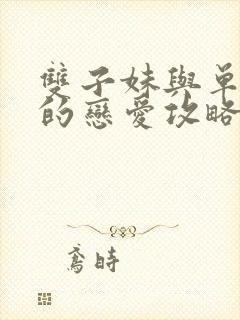 雙子妹與單
的戀愛攻略
鳶時